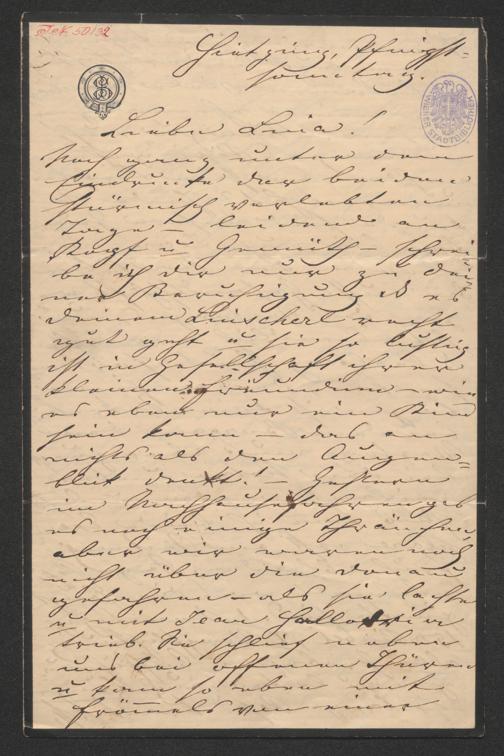 Hietzing, Pfingst-
sonntag.
Liebe Lina!
Noch ganz unter dem
Eindrucke der beiden
stürmisch verlebten
Tage – leidend an
Kopf u Gemüth – schrei
be ich dir nur zu dei
ner Beruhigung daß es
deinem Linscherl recht
gut geht u sie so lustig
ist in Gesellschaft ihrer
kleinen Freundin – wie
es eben nur ein Kind
sein kann – das an
nichts als den Augen=
blick denkt! – Gestern
im Nachhausefahren gab
es noch einige Thränchen
aber wir waren noch
nicht über die Donau
gefahren – als sie lachte
u mit Jean Hallodri
trieb. Sie schlief neben
uns bei offenen Thüren
u kam so eben mit
Frömmels von einer
WIENER STADTBIBLIOTHEK